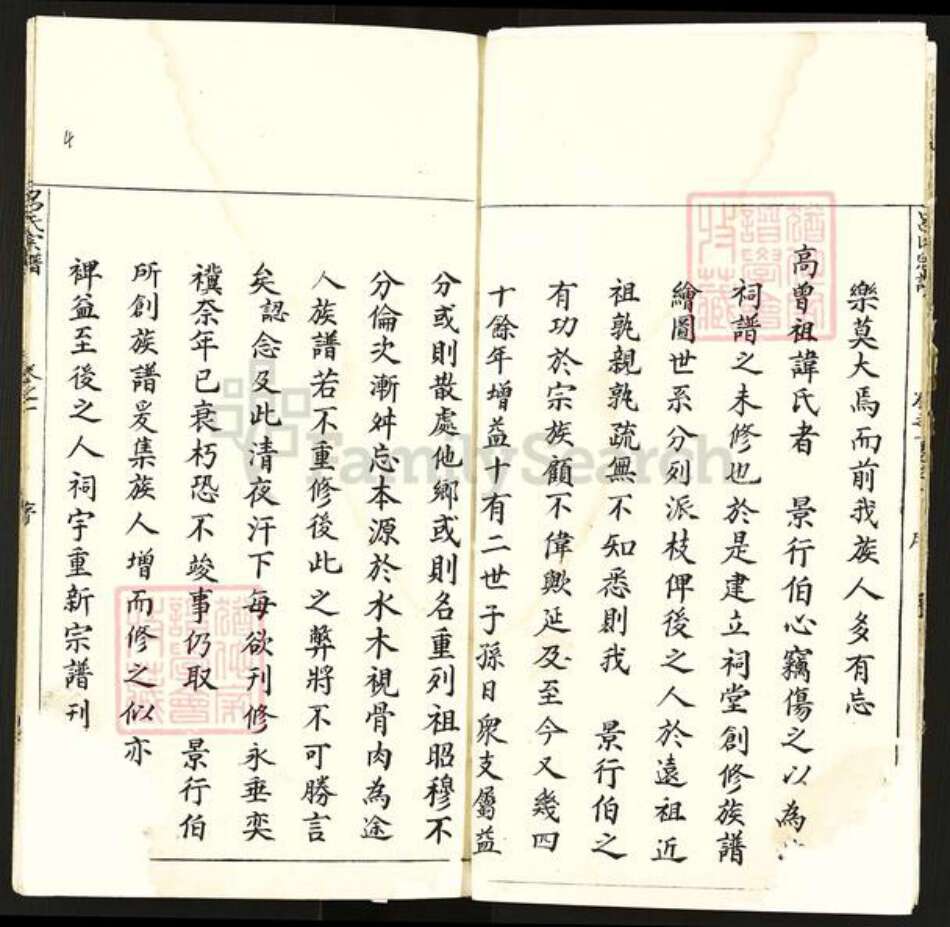 樂莫大焉而前我族人多有忘
高曾祖諱氏者 景行伯心竊傷之以為
祠譜之未修也於是建立祠堂創修族譜
繪圖世系分列派枝俾後之人於遠祖近
祖孰親孰疏無不知悉則我 景行伯之
有功於宗族顧不偉歟延及至今又幾四
十餘年增益十有二世子孫日衆支屬益
分或則散處他鄉或則名重列祖昭穆不
分倫次漸舛忘本源於水木視骨肉為途
人族譜若不重修後此之弊將不可勝言
矣認念及此清夜汗下每欲刊修永垂奕
禩奈年已衰朽恐不竣事仍取 景行伯
所創族譜爰集族人增而修之似亦
裨益至後之人祠宇重新宗譜刊
呂氏宗譜
卷之一
序
4
FamilySearch